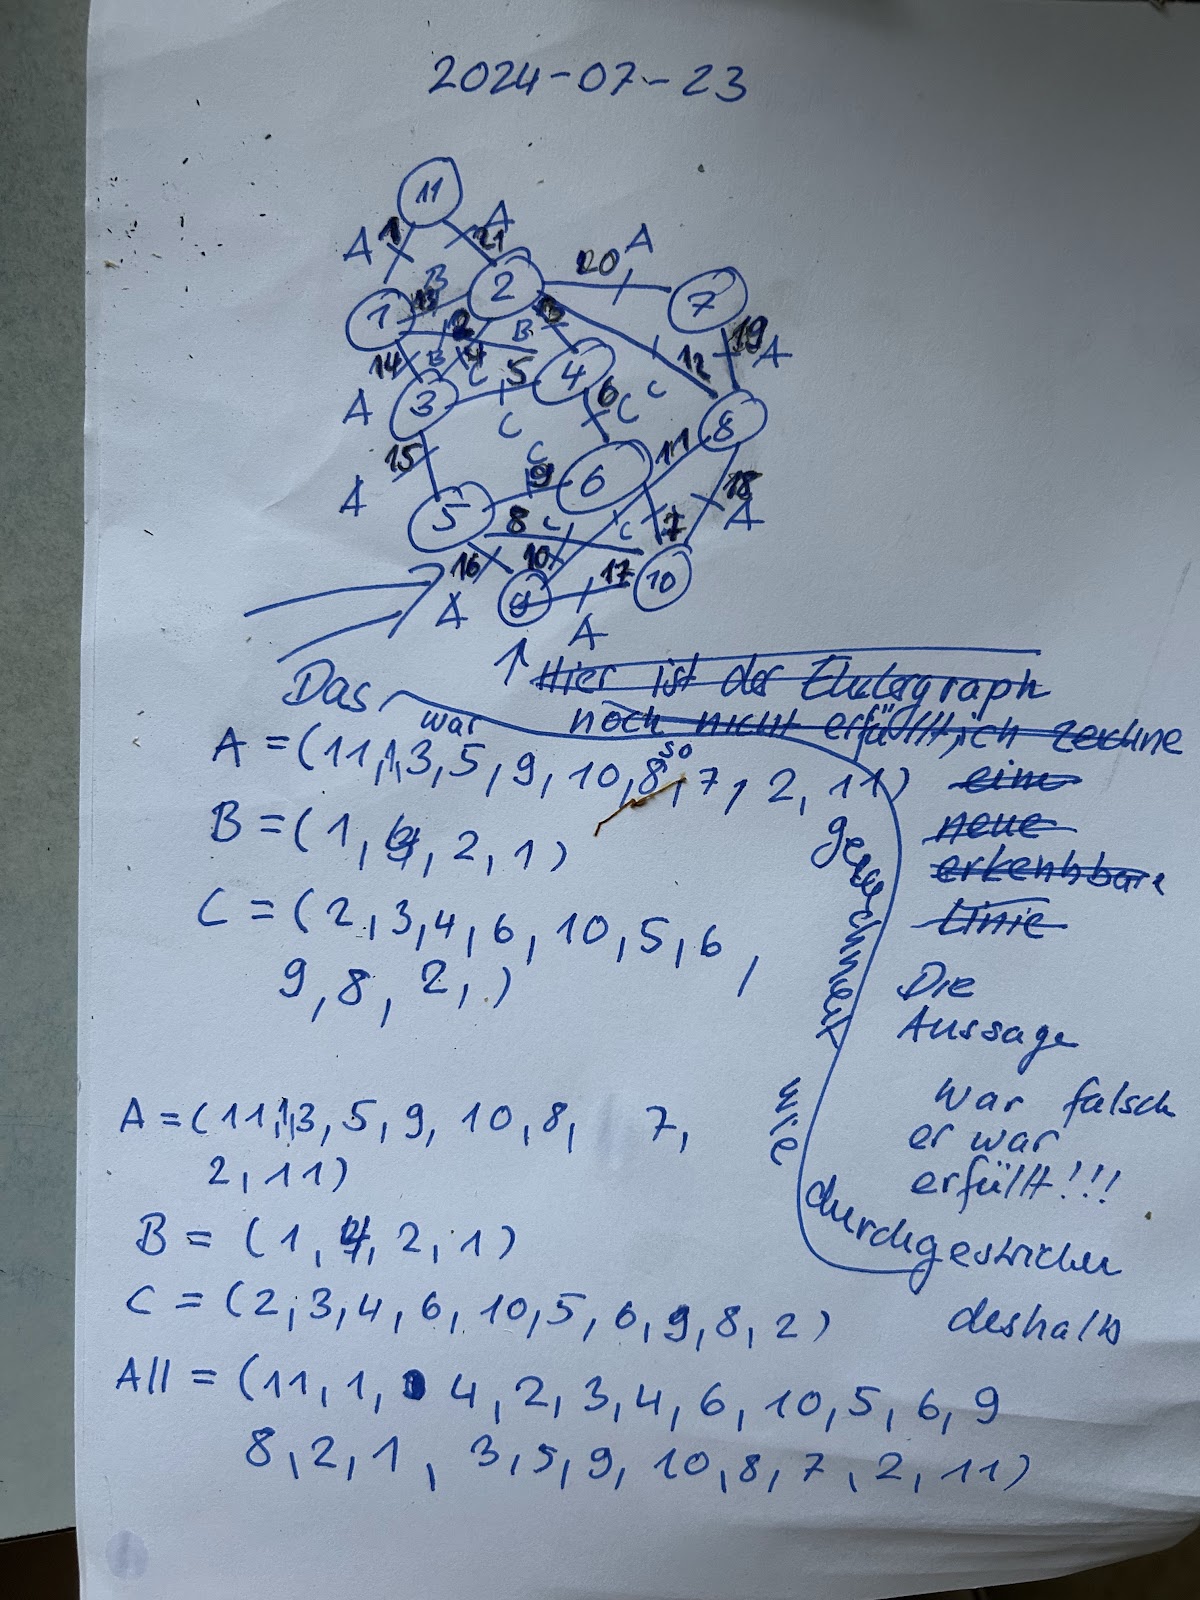 2024-07-23
11
A 1 21 A
B 2 20 A
1 13 7
2 B 13 19 A
14 B 4 C 5 4 12
A 3 6 C C 8
C
15 C 11
A 9 6 18
5 8 C C 7 A
16 10 17 10
A 9 A
Das war so gezeichnet wie durchgestrichen
Hier ist der Eulergraph
noch nicht erfüllt, ich zeichne
eine
neue
erkennbare
Linie
A = (11,1,3,5,9,10,8,7,2,11)
B = (1,4,2,1)
C = (2,3,4,6,10,5,6,
9,8,2,)
Die
Aussage
war falsch
er war
erfüllt!!!
deshalb
A = (11,1,3,5,9,10,8, 7,
2,11)
B = (1,4,2,1)
C = (2,3,4,6,10,5,6,9,8,2)
All = (11,1, 4,2,3,4,6,10,5,6,9
8,2,1,3,5,9,10,8,7,2,11)